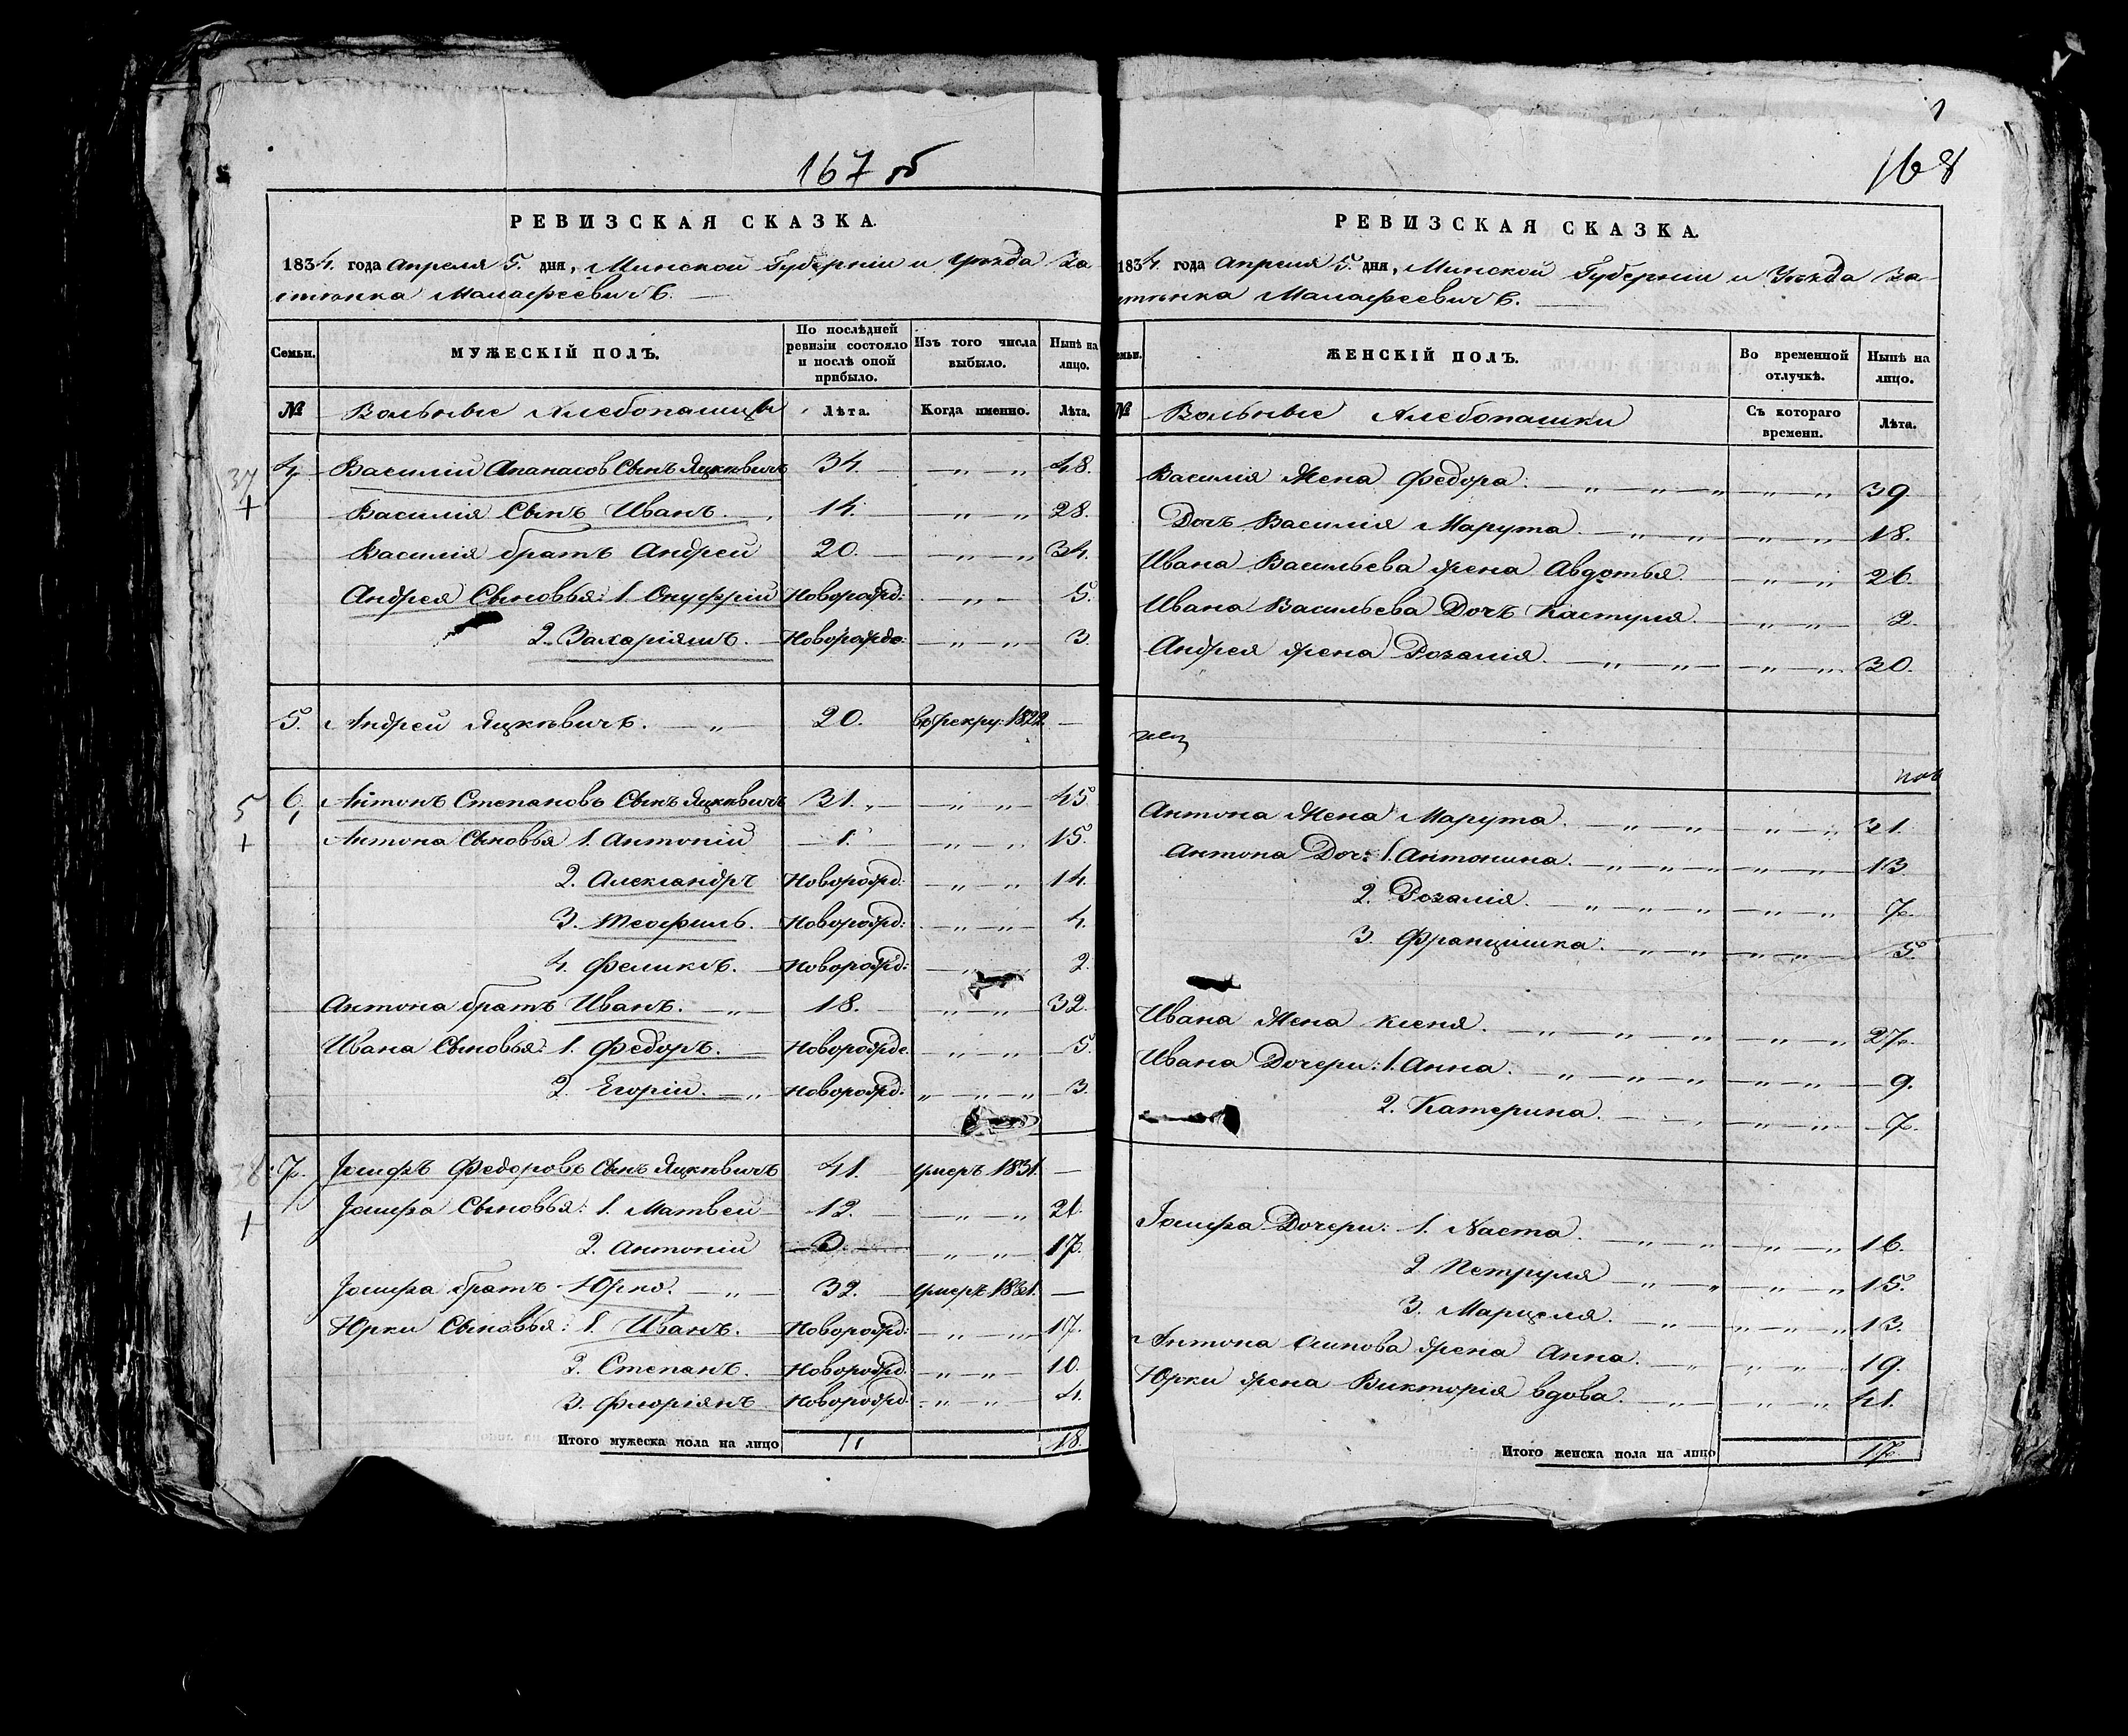 167 об
РЕВИЗСКАЯ СКАЗКА.
1834. года Апреля 5. дня, Минской Губерніи и Уѣзда За
стѣнка Малафеевичъ.
Семьи. МУЖЕСКІЙ ПОЛЪ. По послѣдней ревизіи состояло и послѣ оной прибыло. Изъ того числа выбыло. Нынѣ на лицо.
№ Вольные Хлебопашцы Лѣта. Когда именно. Лѣта.
37 4 Василий Апанасов Сынъ Яцкѣвичъ 34. — „ „ 48.
+ Василія Сынъ Иванъ. 14. — „ „ 28.
Василія братъ Андрей 20. — „ „ 34.
Андрея Сыновья: 1. Онуфрій Новорожд: — „ — 5.
2. Захаріяшъ. Новорожде: — „ „ 3.
5. Андрей Яцкѣвичъ. — „ 20. въ рекру: 1822. —
5 6, Антонъ Степановъ Сынъ Яцкѣвичъ 31. „ — „ „ 45
+ Антона Сыновья 1. Антоній 1. — „ „ 15.
2. Александръ Новорожд: — „ „ 14.
3. Теофиль. Новорожд: — „ „ 4.
4. Феликсъ. Новорожд: — „ 2.
Антона братъ Иванъ. — „ 18. — „ „ 32.
Ивана Сыновья: 1. Федоръ. Новорожде. — „ „ 5.
2. Егорій. — „ Новорожд: „ — „ — „ 3.
7. Іосифъ Федоровъ Сынъ Яцкѣвичъ 41. умеръ 1831. —
+ Іосифа Сыновья: 1. Матвей 12. — „ „ 21.
2. Антоній 3. — „ „ 17.
Іосифа братъ Юрко. — „ 32. умеръ 1831. —
Юрки Сыновья: 1. Иванъ. Новорожд: — „ — „ 17.
2. Степанъ. Новорожд: — „ „ 10.
3. Флоріянъ Новорожд: — „ — „ 4.
Итого мужеска пола на лицо 11 18.
1
168
РЕВИЗСКАЯ СКАЗКА.
1834. года Апреля 5. дня, Минской Губерніи и Уѣзда За
стѣнка Малафеевичъ.
емьи. ЖЕНСКІЙ ПОЛЪ. Во временной отлучкѣ. Нынѣ на лицо.
№ Вольные Хлебопашки Съ котораго времени. Лѣта.
Василія Жена Федора. — „ — „ — „ — „ — „ 39.
Дочь Василія Марута. — „ — „ — „ — „ 18.
Ивана Васильева жена Авдотья. — „ — „ 26
Ивана Васильева Дочь Кастуля. — „ — „ 2.
Андрея жена Розалія. — „ — „ — „ — „ 30.
Антона Жена Марута. — „ — „ — „ — „ 31.
Антона Доч: 1. Антонина. — „ — „ — „ — „ — „ 13
2. Розалія. — „ — „ — „ — „ — „ 7.
3. Францишка. — „ — „ — „ — „ 5.
Ивана Жена Ксеня. — „ — „ — „ — „ — „ 27.
Ивана Дочери: 1. Анна. — „ — „ — „ — „ — „ 9.
2. Катерина. — „ — „ — „ 7.
Іосифа Дочери: 1. Наста. — „ — „ — „ — „ 16.
2 Петруля — „ — „ — „ — „ 15.
3. Марцеля. — „ — „ — „ — „ 13.
Антона Осипова жена Анна. — „ — „ — „ 19.
Юрки жена Викторія вдова. — „ — „ — „ 41.
Итого женска пола на лицо 17.